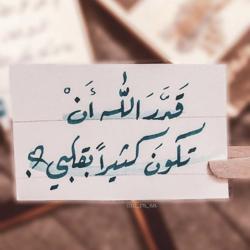 قَدَّرَ اللّٰه أَنْ
تكونَ كثيرًا بقلبي